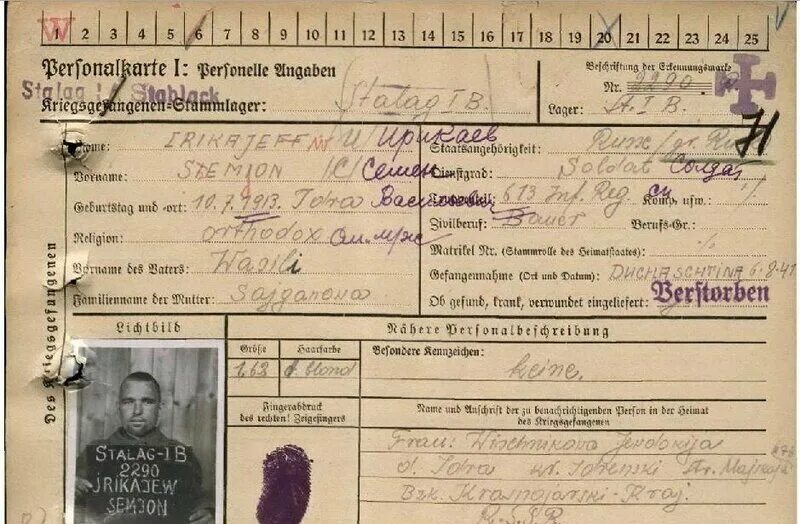 W
1 2 3 4 5 6 7 8 9 10 11 12 13 14 15 16 17 18 19 20 21 22 23 24 25
Personalkarte I: Personelle Angaben
Beschriftung der Erkennungsmarke
Stalag Stablack
Nr. 2290
Kriegsgefangenen-Stammlager: Stalag I B.
Lager: St. I B.
Name: IRIKAJEFF W И Ирикаев
Staatsangehörigkeit: Russ
Vorname: STEMJON Семен
Dienstgrad: Soldat Солдат
Geburtstag und -ort: 10.7.1913. Idra Васильевич
613 Inf. Reg. Komp. usw.: %
Zivilberuf: Bauer Berufs-Gr.:
Religion: Orthodox
Matrikel Nr. (Stammrolle des Heimatstaates): %
Vorname des Vaters: Wasili
Gefangennahme (Ort und Datum): DUCHASCHTINA 6.8.41
Familienname der Mutter: Sajganova
Ob gesund, krank, verwundet eingeliefert:
Verstorben
Des Kriegsgefangenen
Lichtbild
Nähere Personalbeschreibung
Größe Haarfarbe Besondere Kennzeichen:
1,63 d. blond keine.
Fingerabdruck
des rechten! Zeigefingers
Name und Anschrift der zu benachrichtigenden Person in der Heimat
des Kriegsgefangenen
Frau: Wischnikova Jevdokija
d. Idra
Bzk. Krasnojarski-Kraj.
STALAG-IB
2290
JRIKAJEW
SEMJON